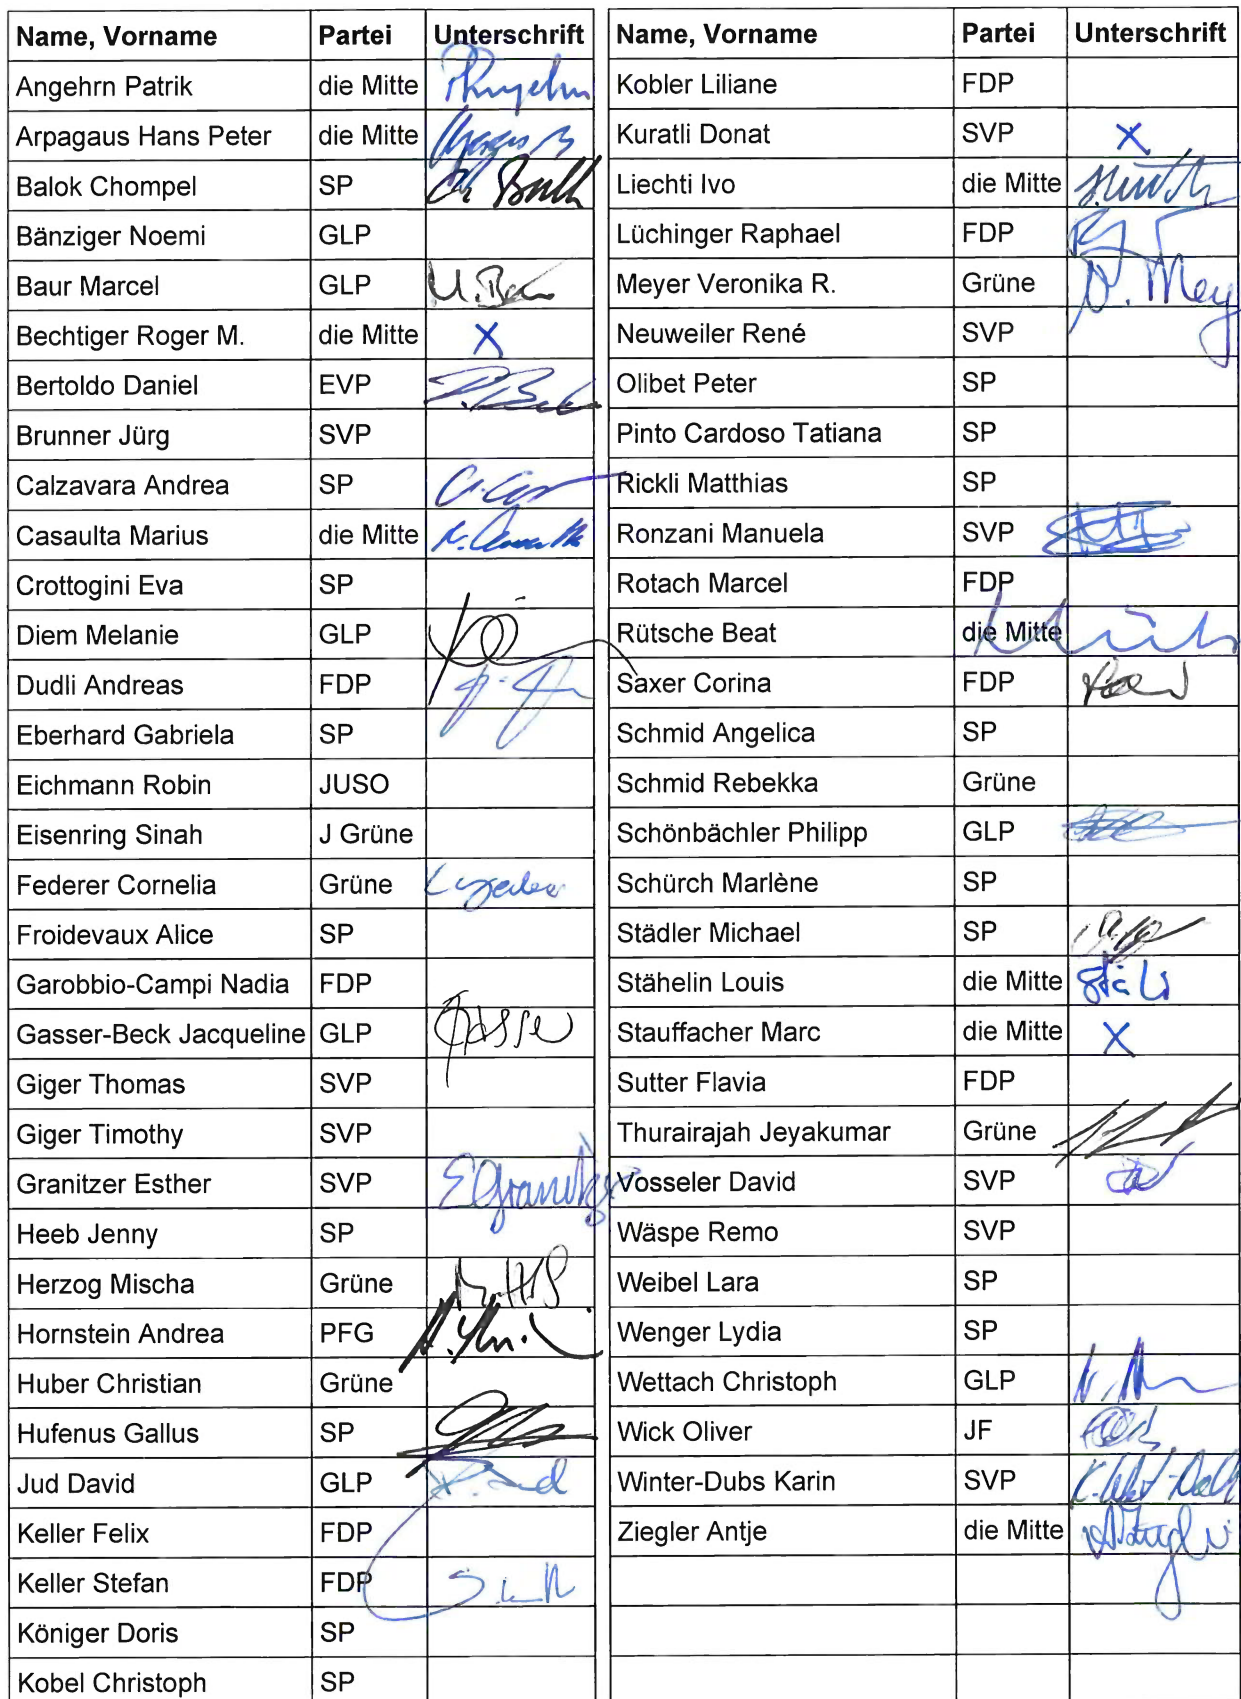 Name, Vorname Partei Unterschrift
Angehrn Patrik die Mitte
Arpagaus Hans Peter die Mitte
Balok Chompel SP
Bänziger Noemi GLP
Baur Marcel GLP
Bechtiger Roger M. die Mitte X
Bertoldo Daniel EVP
Brunner Jürg SVP
Calzavara Andrea SP
Casaulta Marius die Mitte
Crottogini Eva SP
Diem Melanie GLP
Dudli Andreas FDP
Eberhard Gabriela SP
Eichmann Robin JUSO
Eisenring Sinah J Grüne
Federer Cornelia Grüne
Froidevaux Alice SP
Garobbio-Campi Nadia FDP
Gasser-Beck Jacqueline GLP
Giger Thomas SVP
Giger Timothy SVP
Granitzer Esther SVP
Heeb Jenny SP
Herzog Mischa Grüne
Hornstein Andrea PFG
Huber Christian Grüne
Hufenus Gallus SP
Jud David GLP
Keller Felix FDP
Keller Stefan FDP
Königer Doris SP
Kobel Christoph SP
Name, Vorname Partei Unterschrift
Kobler Liliane FDP
Kuratli Donat SVP X
Liechti Ivo die Mitte
Lüchinger Raphael FDP
Meyer Veronika R. Grüne
Neuweiler René SVP
Olibet Peter SP
Pinto Cardoso Tatiana SP
Rickli Matthias SP
Ronzani Manuela SVP
Rotach Marcel FDP
Rütsche Beat die Mitte
Saxer Corina FDP
Schmid Angelica SP
Schmid Rebekka Grüne
Schönbächler Philipp GLP
Schürch Marlène SP
Städler Michael SP
Stähelin Louis die Mitte
Stauffacher Marc die Mitte X
Sutter Flavia FDP
Thurairajah Jeyakumar Grüne
Vosseler David SVP
Wäspe Remo SVP
Weibel Lara SP
Wenger Lydia SP
Wettach Christoph GLP
Wick Oliver JF
Winter-Dubs Karin SVP
Ziegler Antje die Mitte